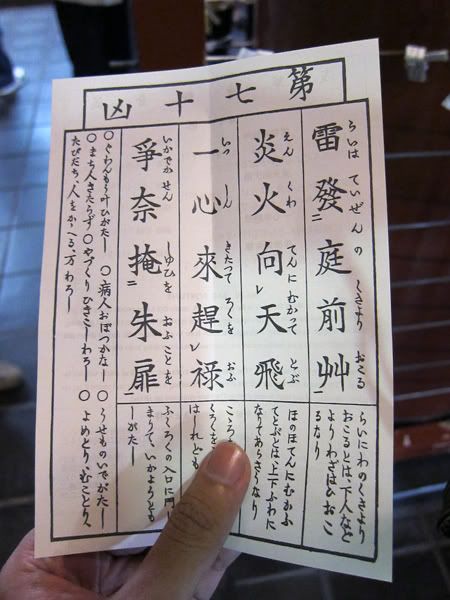 第七十凶
らいは ていぜん の くさより おこる
雷發二庭前艸一
らいにわのくさより
おこるとは、下人など
よりわざはひおこ
るなり
えん くわ てんに むかつて とぶ
炎火向レ天飛
ほのほてんにむかふ
てとぶとは、上下ふわに
なりてあらさうなり
いつ しん きたつて ろくを おふ
一心來趕レ禄
こころ
くろくを
はしれども
いかでかせん しゆひを おふことを
爭奈掩二朱扉一
ふくろくの入口に門
まりて、いかようとも
しがたし
〇ぐわんもう叶ひがたし 〇病人おぼつかなし 〇うせものいでがたし
〇まち人きたらず〇やづくりひきこしわろし 〇よめとり、むことり、
たびだち、人をかゝへる、万わろし